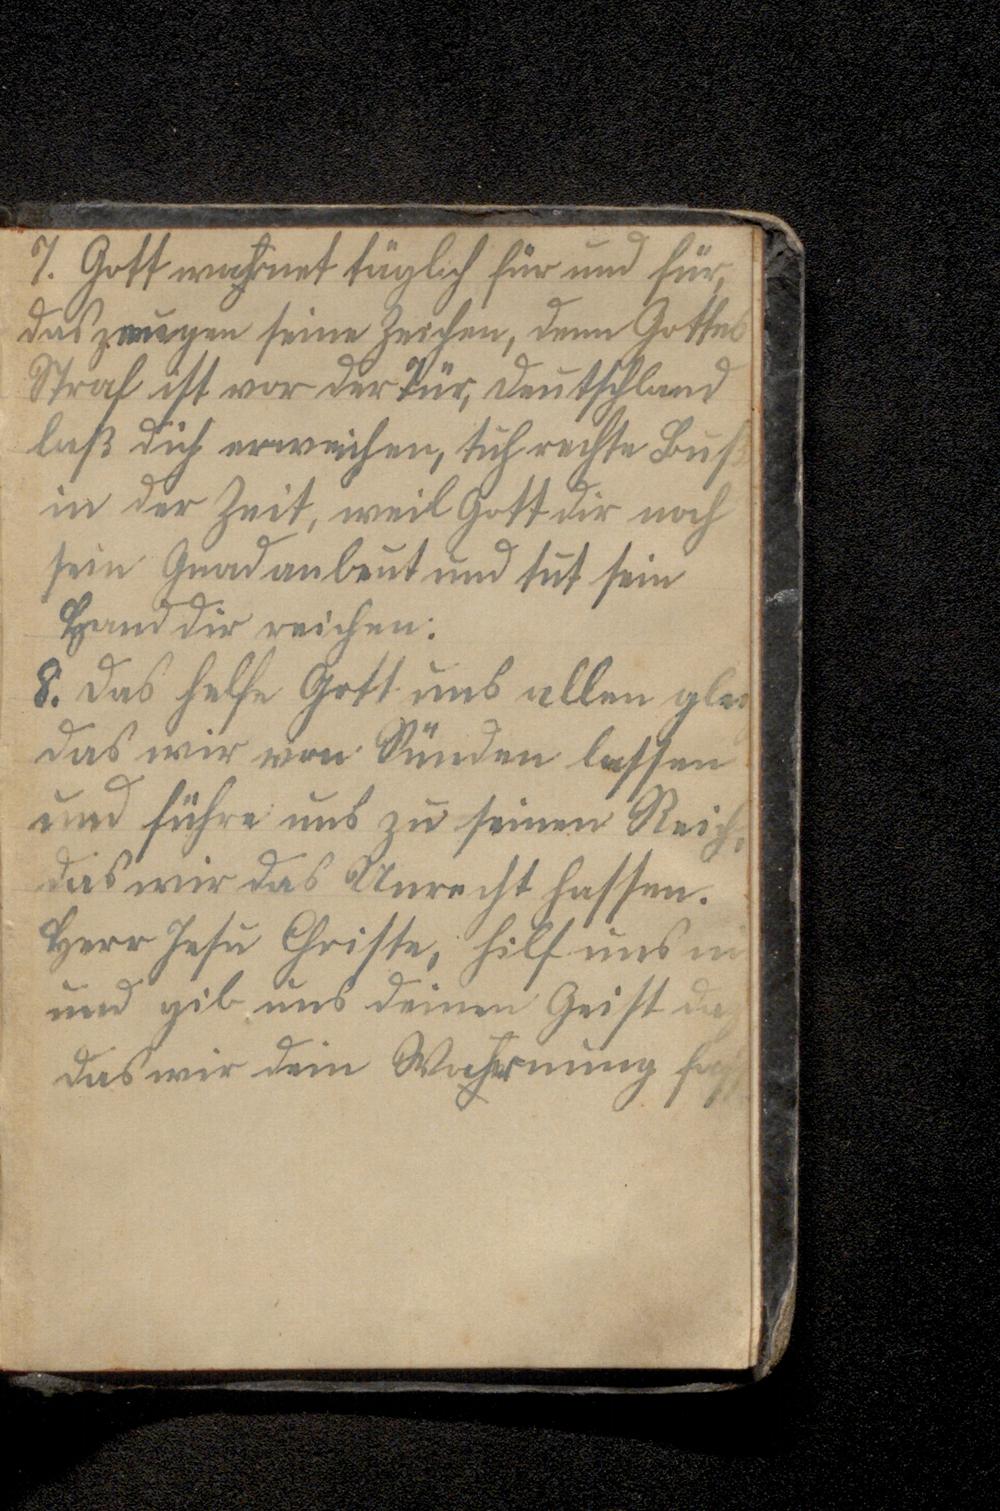 7. Gott wahrnet täglich für und für,
das zeugen seine Zeichen, denn Gottes
Straf ist vor der Tür, Deutschland
laß dich erweichen, tuh rechte Buß
in der Zeit, weil Gott dir noch
sein Gnad anbeut und tut sein
Hand dir reichen.
8. Das helfe Gott uns allen glei
das wir von Sünden lassen
und führe uns zu seinen Reich,
das wir das Unrecht hassen.
Herr Jesu Christe, hilf uns
und gib uns deinen Geist
das wir dein Wahrnung